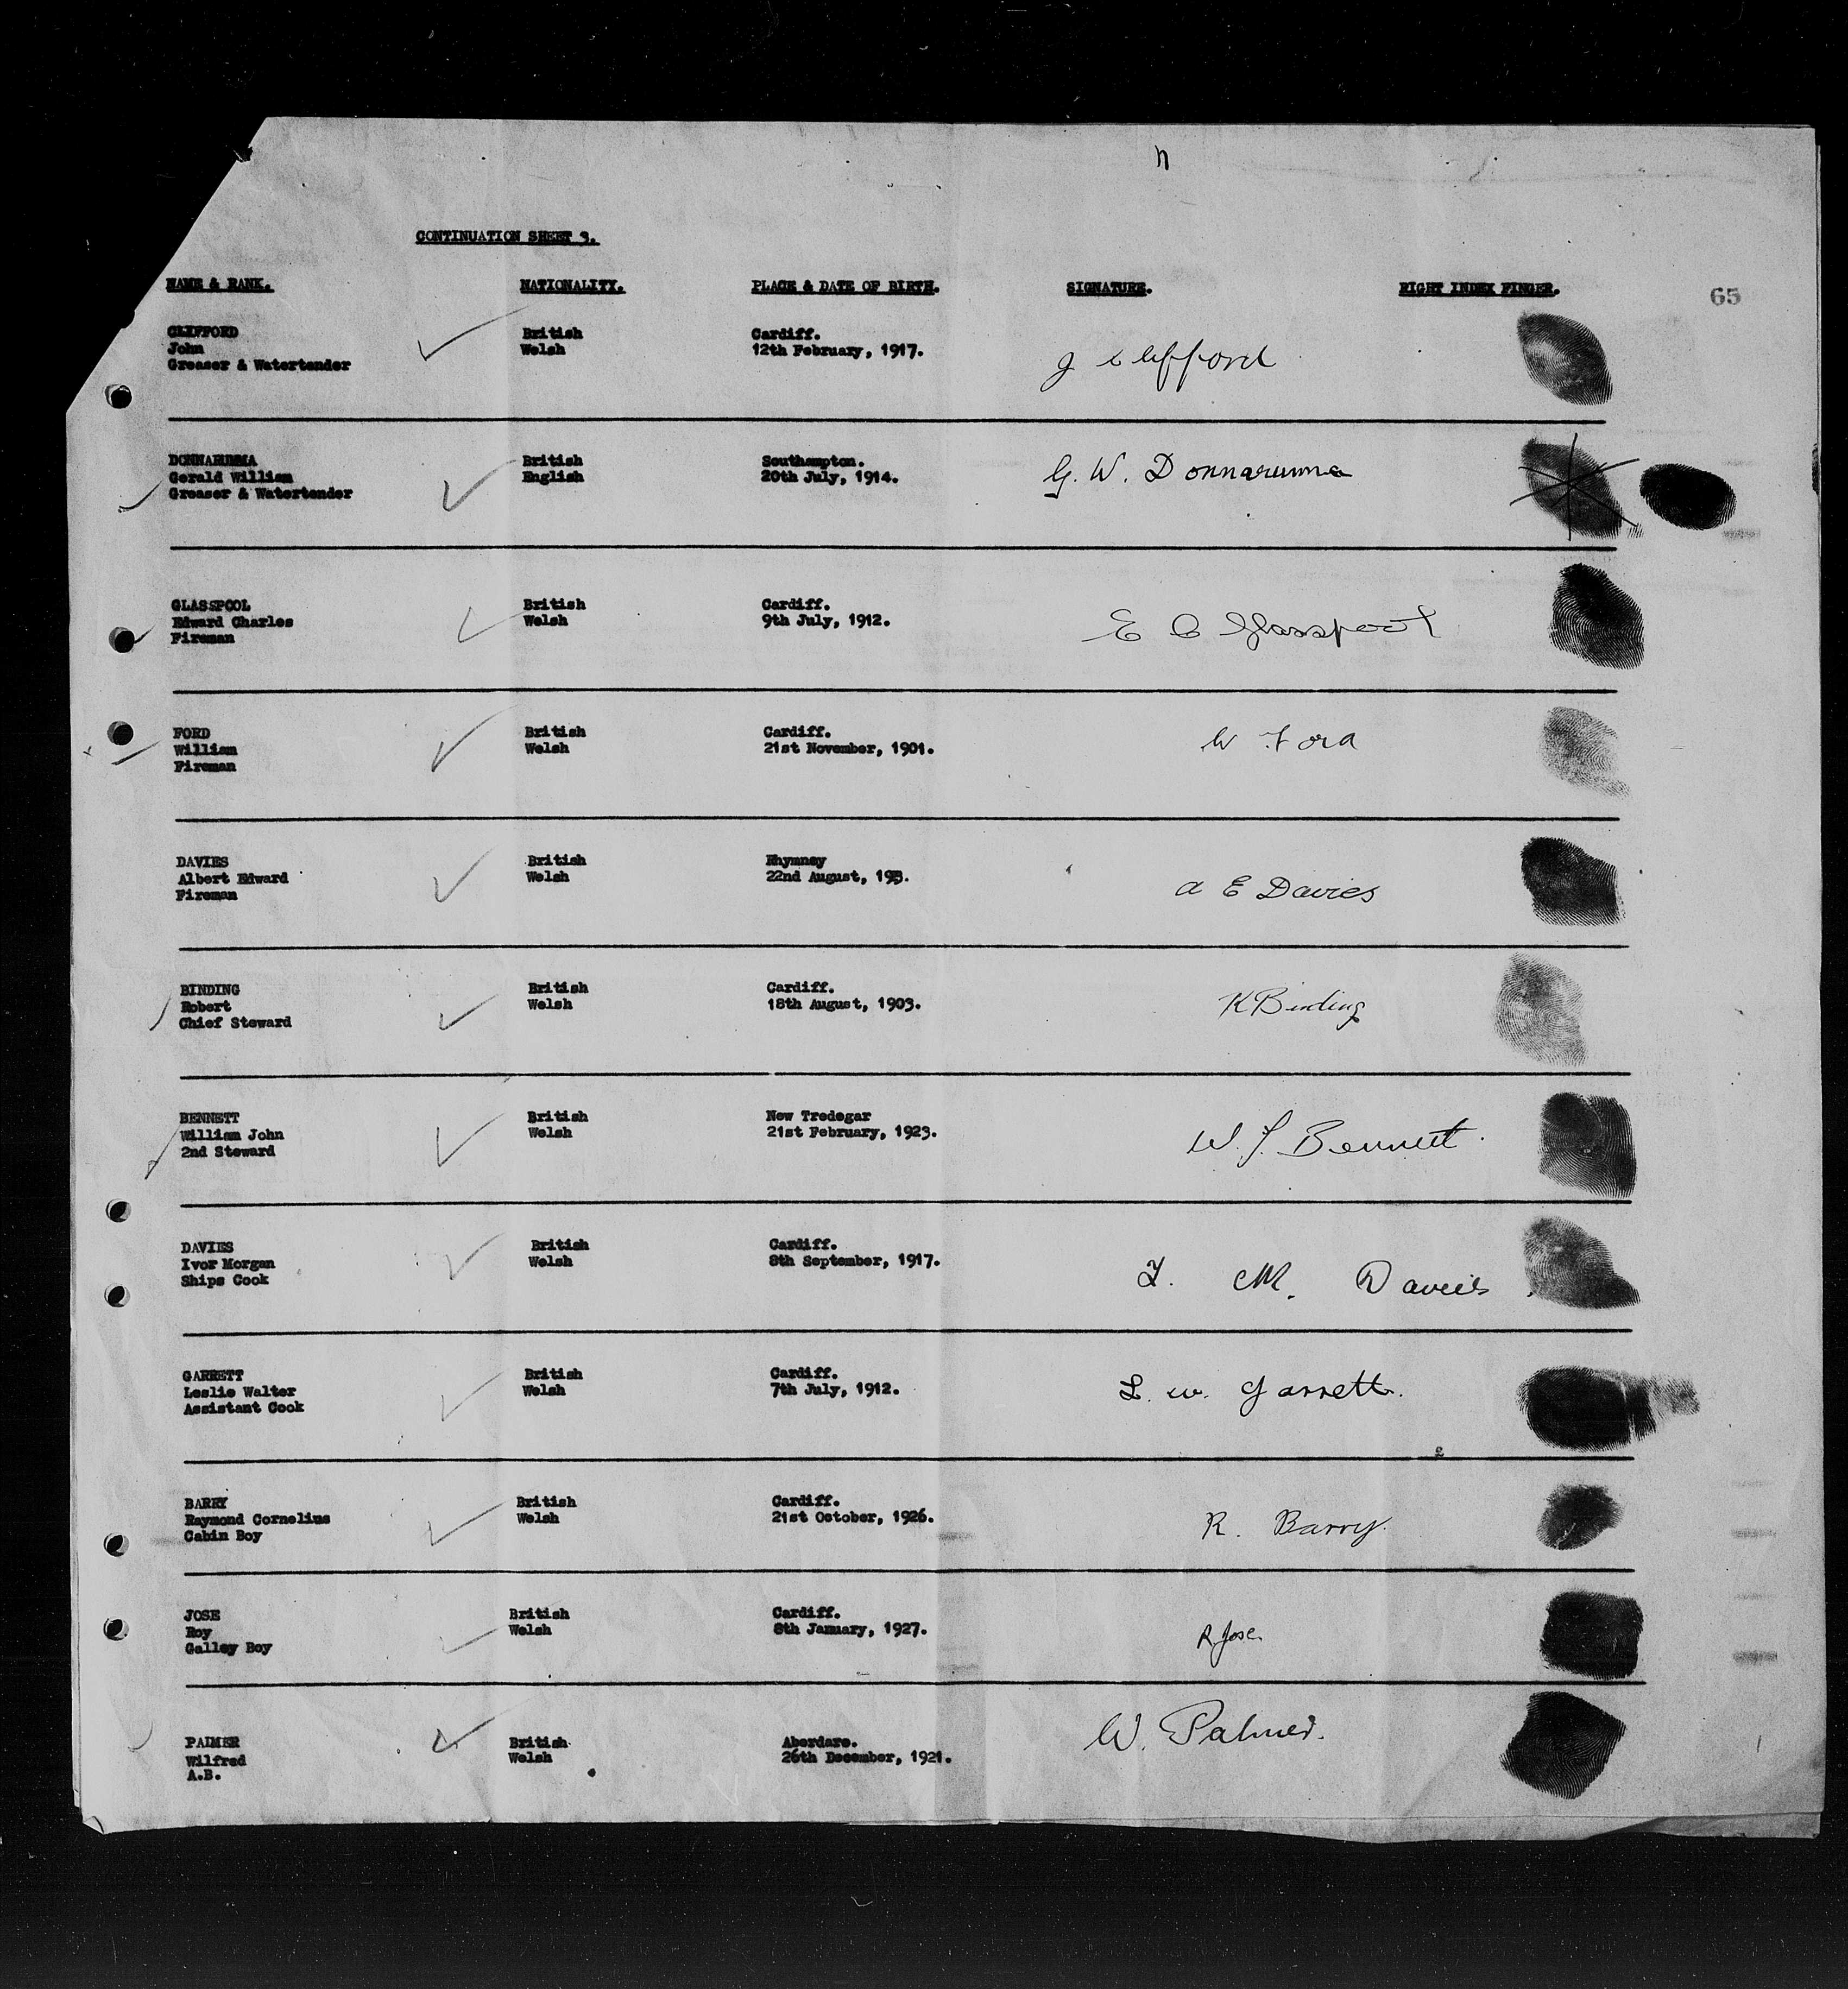 CONTINUATION SHEET 3.
NAME & RANK. NATIONALITY. PLACE & DATE OF BIRTH. SIGNATURE. RIGHT INDEX FINGER. 65
CLIFFORD British Cardiff.
John Welsh 12th February, 1917. J Clifford
Greaser & Watertender
DONNARUMMA British Southampton.
Gerald William English 20th July, 1914. G. W. Donnarumma
Greaser & Watertender
GLASSPOOL British Cardiff.
Edward Charles Welsh 9th July, 1912. E C Glasspool
Fireman
FORD British Cardiff.
William Welsh 21st November, 1901. W Ford
Fireman
DAVIES British Rhymney
Albert Edward Welsh 22nd August, A E Davies
Fireman
BINDING British Cardiff.
Robert Welsh 18th August, 1903. R Binding
Chief Steward
BENNETT British New Tredegar
William John Welsh 21st February, 1923. W. J. Bennett.
2nd Steward
DAVIES British Cardiff.
Ivor Morgan Welsh 8th September, 1917. I. M. Davies
Ships Cook
GARRETT British Cardiff.
Leslie Walter Welsh 7th July, 1912. L. W. Garrett.
Assistant Cook
BARRY British Cardiff.
Raymond Cornelius Welsh 21st October, 1926. R. Barry.
Cabin Boy
JOSE British Cardiff.
Roy Welsh 8th January, 1927. R Jose.
Galley Boy
PALMER British Aberdare. W. Palmer.
Wilfred Welsh 26th December, 1921.
A.B.